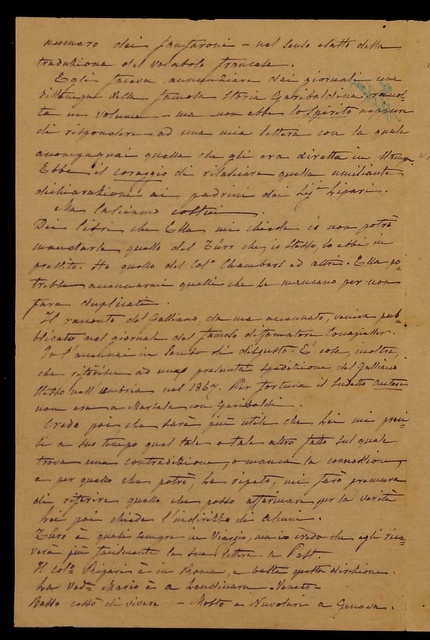 numero dei fanfaroni – nel senso esatto della
traduzione del vocabolo francese.
Egli faceva annunziare dai giornali una
ristampa della famosa Storia Garibaldina
ta in volume – ma non ebbe lo spirito neppure
di rispondere ad una mia lettera con la quale
accompagnai quella che gli era diretta in
Ebbe il coraggio di rilasciare quella umiliante
dichiarazione ai padrini dei Sig.i Lipari.
Ma lasciamo costui.
Dei libri che Ella mi chiede io non potrò
mandarle quello del Türr che, io stesso, lo ebbi in
prestito. Ho quello del Col.o Chambers ed altri. Ella po-
trebbe accennarmi quelli che le mancano per non
fare duplicati.
Il racconto del Galliano da me accennato, veniva pub-
blicato nel giornale del famoso diffamatore
Io l'ascoltai in senso di disgusto. E' vero, inoltre,
che riferivasi ad una pretesa spedizione del Galliano
stesso nell'Umbria nel 1867. Per fortuna il sudetto autore
non era a Marsala con Garibaldi.
Credo poi che sarà più utile che Lei mi preci-
si a suo tempo quel tale o tale altro fatto sul quale
trova una contradizione, o manca la connessione,
e per quello che potrò, ho ripeto, mi farò premura
di riferire quello che posso affermare per la verità
Lei poi chiede l'indirizzo di alcuni.
Türr è quasi sempre in viaggio, ma io credo che egli rice-
verà più facilmente la sua lettera a Pest.
Il Col.o è in Roma, e basta questa direzione.
La Ved.a Mario è a Lendinara – Veneto –
Basso cessò di vivere – Mosto e Nuvolari a Genova.